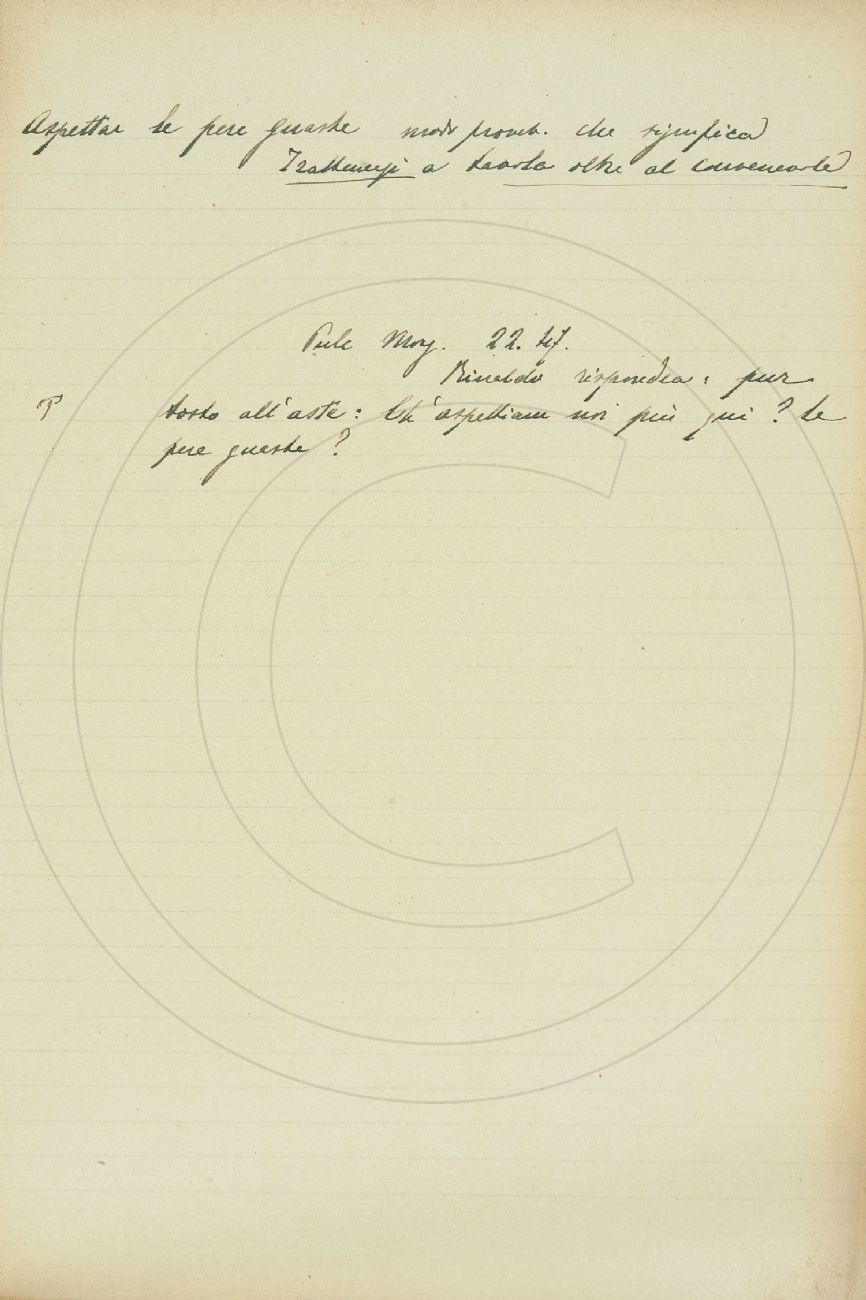 Aspettar le pere guaste modo proverb. che significa
Trattenersi a tavola oltre al convenevole
Pulc Morg. 22. 47.
Rinaldo rispondea: pur
tosto all'aste: Ch'aspettiam noi più qui? le
pere guaste?